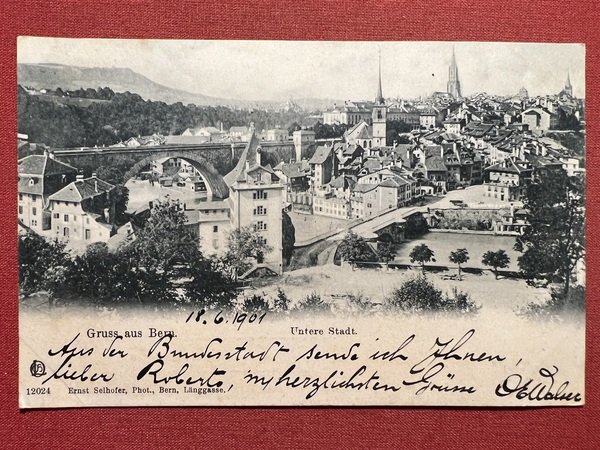 18.6.1901
Gruss aus Bern. Untere Stadt.
Aus der Bundesstadt sende ich Ihnen,
lieber Roberto, herzlichsten Grüsse
12024 Ernst Selhofer, Phot., Bern, Länggasse.